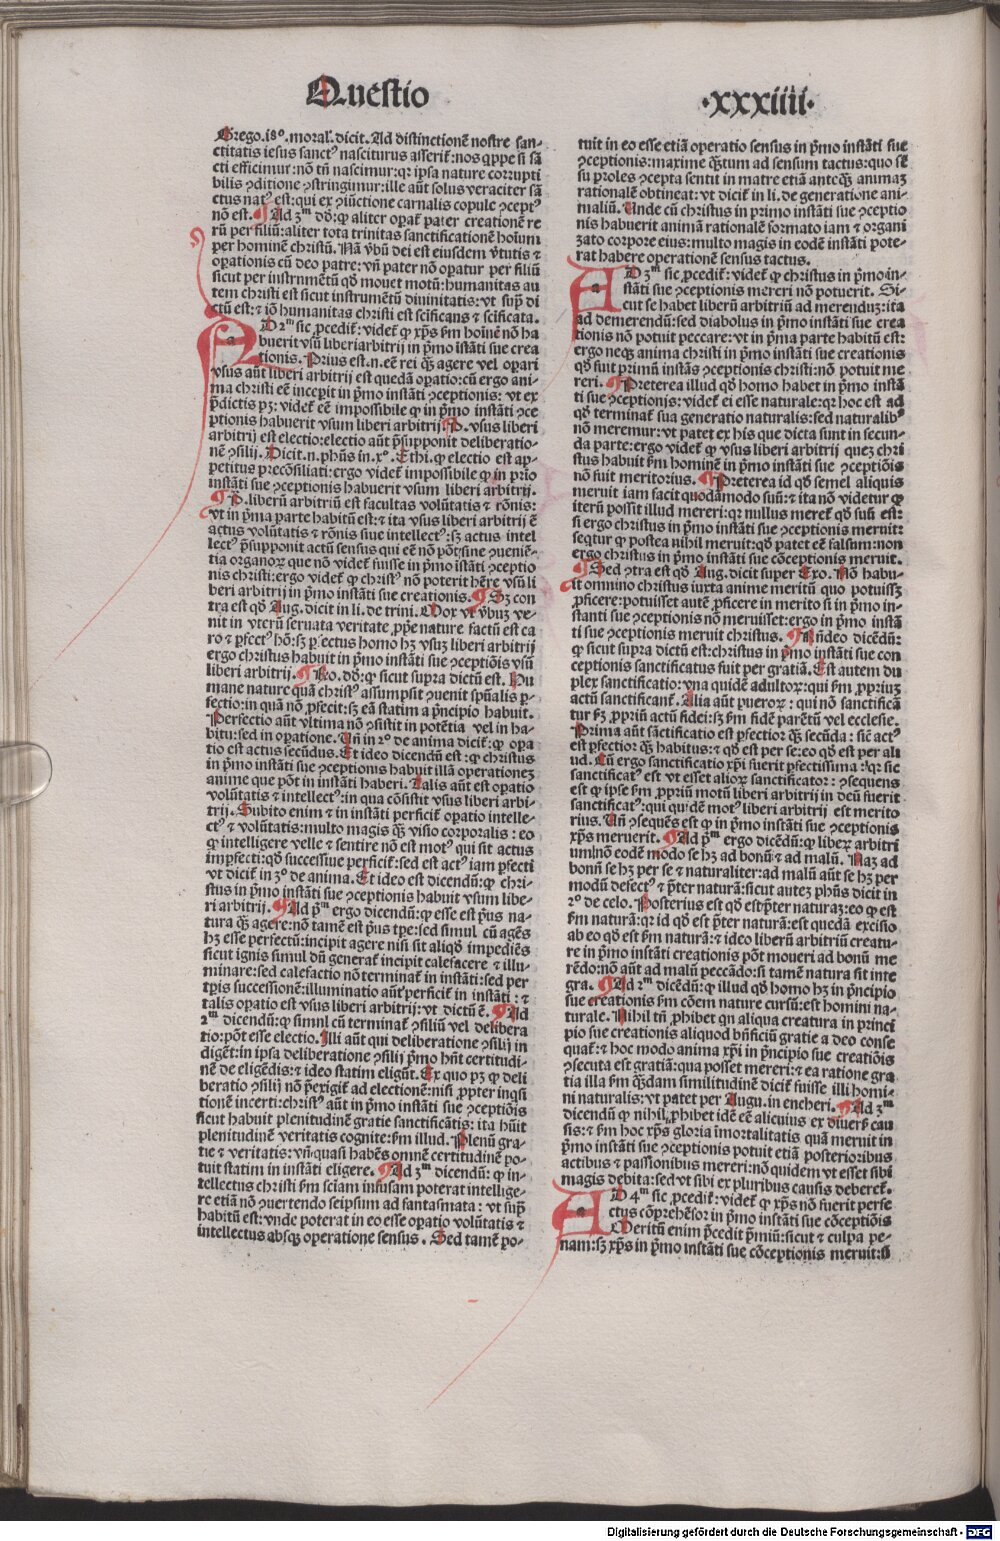 Questio
·xxxiiii·
Grego.i8º.moral̕.dicit.Ad distinctionē nostre san-
ctitatis iesus sanctꝰ nasciturus asserit̕:nos qͥppe si sā
cti efficimur:nō tn̄ nascimur:qꝛ ip̄sa nature corrupti
bilis ꝯditione ꝯstringimur:ille aūt solus veraciter sā
ctus natꝰ est:qui ex ꝯiūctione carnalis copule ꝯceptꝰ
nō est. ¶ Ad 3ᵐ dō:ꝙ aliter opat̕ pater creationē re
rū per filiū:aliter tota trinitas sanctificationē hoīum
per hominē christū. Nā v̄bū dei est eiusdem v̄tutis ⁊
oꝑationis cū deo patre:vn̄ pater nō opatur per filiū
sicut per instrumētū qd̄ mouet motū:humanitas au
tem christi est sicut instrumētū diuinitatis:vt supͣ di
ctū est:⁊ iō humanitas christi est sc̄ificans ⁊ sc̄ificata.
AD 2ᵐ sic ꝓcedit̕:videt̕ ꝙ xp̄s ẜm hoīne nō ha
buerit vsū liberiarbitrij in pͥmo īstāti sue crea
tionis. Prius est.n.eē rei qͣꝫ agere vel opari
vsus aūt liberi arbitrij est quedā oꝑatio:cū ergo ani-
ma christi eē incepit in pͥmo instāti ꝯceptionis: vt ex
p̄dictis pꝫ: videt̕ eē impossibile ꝙ in pͥmo instāti ꝯce
ptionis habuerit vsum liberi arbitrij ¶ P. vsus liberi
arbitrij est electio:electio aūt p̄supponit deliberatio-
nē ꝯsilij. Dicit.n.ph̄us in.xº. Ethi.ꝙ electio est ap-
petitus precōsiliati:ergo videt̕ impossibile ꝙ in prīo
instāti sue ꝯceptionis habuerit vsum liberi arbitrij.
¶ P. liberū arbitriū est facultas volūtatis ⁊ rōnis:
vt in pͥma parte habitū est:⁊ ita vsus liberi arbitrij ē
actus volūtatis ⁊ rōnis siue intellectꝰ:sꝫ actus intel
lectꝰ p̄supponit actū sensus qui eē nō pōt sine ꝯueniē-
tia organoꝝ que nō videt̕ fuisse in pͥmo īstāti ꝯceptio
nis christi:ergo videt̕ ꝙ christꝰ nō poterit hēre vsū li
beri arbitrij in pͥmo instāti sue creationis. ¶ Sꝫ con
tra est qd̄ Aug.dicit in li.de trini. Mox vt v̄buꝫ ve-
nit in vterū seruata veritate ꝓpͥe nature factū est ca
ro ⁊ ꝑfectꝰ hō:sꝫ ꝑfectus homo hꝫ vsuꝫ liberi arbitrij
ergo christus habuit in pͥmo instāti sue ꝯceptiōis vsū
liberi arbitrij. ¶ Ro. dō: ꝙ sicut supra dictū est. Hu
mane nature quā christꝰ assumpsit ꝯuenit spūalis ꝑ-
fectio:in qua nō ꝓfecit:sꝫ eā statim a pͥncipio habuit.
Perfectio aūt vltima nō ꝯsistit in potētia vel in ha-
bitu:sed in oꝑatione. Vn̄ in 2º de anima dicit̕: ꝙ opa
tio est actus secūdus. Et ideo dicendū est:ꝙ christus
in pͥmo instāti sue ꝯceptionis habuit illā operationeꝫ
anime que pōt in instāti haberi. Talis aūt est opatio
volūtatis ⁊ intellectꝰ:in qua cōsistit vsus liberi arbi-
trij. Subito enim ⁊ in instāti perficit̕ opatio intelle-
ctꝰ ⁊ volūtatis:multo magis qͣꝫ visio corporalis: eo
ꝙ intelligere velle ⁊ sentire nō est motꝰ qui sit actus
imꝑfecti:qd̄ successiue perficit̕:sed est actꝰ iam ꝑfecti
vt dicit̕ in 3º de anima. Et ideo est dicendū:ꝙ chri-
stus in pͥmo instāti sue ꝯceptionis habuit vsum libe-
ri arbitrij. ¶ Ad pͫ ergo dicendū:ꝙ esse est pͥus na-
tura qͣꝫ agere:nō tamē est pͥus tp̄e:sed simul cū agēs
hꝫ esse perfectū:incipit agere nisi sit aliqd̄ impediēs
sicut ignis simul dū generat̕ incipit calefacere ⁊ illu-
minare:sed calefactio nō terminat̕ in instāti:sed per
tp̄is successionē:illuminatio aūt ꝑficit̕ in instāti: ⁊
talis oꝑatio est vsus liberi arbitrij: vt dictū ē. ¶ Ad
2ᵐ dicendū:ꝙ simul cū terminat̕ ꝯsiliū vel delibera
tio:pōt esse electio. Illi aūt qui deliberatione ꝯsilij in
digēt:in ipsa deliberatione ꝯsilij pͥmo hn̄t certitudi-
nē de eligēdis:⁊ ideo statim eligūt. Ex quo pꝫ ꝙ deli
beratio ꝯsilij nō p̄exigit̕ ad electionē:nisi ꝓpter inqͥsi
tionē incerti:christꝰ aūt in pͥmo instāti sue ꝯceptiōis
sicut habuit plenitudinē gratie sanctificātis: ita hūit
plenitudinē veritatis cognite:ẜm illud. Plenū gra-
tie ⁊ veritatis:vn̄ quasi habēs omnē certitudinē po-
tuit statim in instāti eligere. ¶ Ad 3ᵐ dicendū: ꝙ in-
tellectus christi ẜm sciam infusam poterat intellige-
re etiā nō ꝯuertendo seipsum ad fantasmata: vt supͣ
habitū est:vnde poterat in eo esse opatio volūtatis ⁊
intellectus absqꝫ operatione sensus. Sed tamē po-
tuit in eo esse etiā operatio sensus in pͥmo instāti sue
ꝯceptionis:maxime qͣꝫtum ad sensum tactus:quo sē
su ꝓles ꝯcepta sentit in matre etiā anteqͣꝫ animaꝫ
rationalē obtineat: vt dicit̕ in li. de generatione ani-
maliū. Unde cū christus in primo instāti sue ꝯceptio
nis habuerit animā rationalē formato iam ⁊ organi
zato corpore eius:multo magis in eodē instāti pote-
rat habere operationē sensus tactus.
AD 3ᵐ sic ꝓcedit̕: videt̕ ꝙ christus in pͥmo in-
stāti sue ꝯceptionis mereri nō potuerit. Si-
cut se habet liberū arbitriū ad merenduꝫ:ita
ad demerendū:sed diabolus in pͥmo instāti sue crea
tionis nō potuit peccare: vt in pͥma parte habitū est:
ergo neqꝫ anima christi in pͥmo instāti sue creationis
qd̄ fuit primū instās ꝯceptionis christi:nō potuit me
reri. ¶ Preterea illud qd̄ homo habet in pͥmo instā
ti sue ꝯceptionis: videt̕ ei esse naturale:qꝛ hoc est ad
qd̄ terminat̕ sua generatio naturalis:sed naturalibꝰ
nō meremur: vt patet ex his que dicta sunt in secun-
da parte:ergo videt̕ ꝙ vsus liberi arbitrij queꝫ chri
stus habuit ẜm hominē in pͥmo instāti sue ꝯceptiōis
nō fuit meritorius. ¶ Preterea id qd̄ semel aliquis
meruit iam facit quodāmodo suū:⁊ ita nō videtur ꝙ
iterū possit illud mereri:qꝛ nullus meret̕ qd̄ suū est:
si ergo christus in pͥmo instāti sue ꝯceptionis meruit:
seqͥtur ꝙ postea nihil meruit:qd̄ patet eē falsum:non
ergo christus in pͥmo instāti sue cōceptionis meruit.
¶ Sed ꝯtra est qd̄ Aug.dicit super Exo. Nō habu-
it omnino christus iuxta anime meritū quo potuissꝫ
ꝓficere:potuisset autē ꝓficere in merito si in pͥmo in-
stanti sue ꝯceptionis nō meruisset:ergo in pͥmo instā
ti sue ꝯceptionis meruit christus. ¶ Rn̄deo dicēdū:
ꝙ sicut supra dictū est:christus in pͥmo instāti sue con
ceptionis sanctificatus fuit per gratiā. Est autem du
plex sanctificatio:vna quidē adultoꝝ:qui ẜm ꝓpriuꝫ
actū sanctificant̕. Alia aūt pueroꝝ: qui nō sanctificā
tur ẜꝫ ꝓpriū actū fidei:sꝫ ẜm fidē parētū vel ecclesie.
Prima aūt sāctificatio est ꝑfectior qͣꝫ secūda: sic̄ actꝰ
est ꝑfectior qͣꝫ habitus:⁊ qd̄ est per se:eo qd̄ est per ali
ud. Cū ergo sanctificatio xp̄i fuerit ꝑfectissima:qꝛ sic
sanctificatꝰ est vt esset alioꝝ sanctificator: ꝯsequens
est ꝙ ipse ẜm ꝓpriū motū liberi arbitrij in deū fuerit
sanctificatꝰ:qui quidē motꝰ liberi arbitrij est merito
rius. Vn̄ ꝯsequēs est ꝙ in pͥmo instāti sue ꝯceptionis
xp̄s meruerit. ¶ Ad pͫ ergo dicēdū:ꝙ liberꝝ arbitri
um nō eodē modo se hꝫ ad bonū ⁊ ad malū. Naꝫ ad
bonū se hꝫ per se ⁊ naturaliter:ad malū aūt se hꝫ per
modū defectꝰ ⁊ p̄ter naturā:sicut auteꝫ ph̄us dicit in
2º de celo. Posterius est qd̄ est p̄ter naturaꝫ:eo ꝙ est
ẜm naturā:qꝛ id qd̄ est p̄ter naturā:est quedā excisio
ab eo qd̄ est ẜm naturā:⁊ ideo liberū arbitriū creatu-
re in pͥmo instāti creationis pōt moueri ad bonū me
rēdo:nō aūt ad malū peccādo:si tamē natura sit inte
gra. ¶ Ad 2ᵐ dicēdū:ꝙ illud qd̄ homo hꝫ in pͥncipio
sue creationis ẜm cōem nature cursū:est homini na-
turale. Nihil tn̄ ꝓhibet qn aliqua creatura in princi
pio sue creationis aliquod bn̄ficiū gratie a deo conse
quat̕:⁊ hoc modo anima xp̄i in pͥncipio sue creatiōis
ꝯsecuta est gratiā:qua posset mereri:⁊ ea ratione gra
tia illa ẜm qͣꝫdam similitudinē dicit̕ fuisse illi homi-
ni naturalis:vt patet per Augn.in encheri. ¶ Ad 3ᵐ
dicendū ꝙ nihil ꝓhibet idē eē alicuius ex diuerẜ cau
sis:⁊ ẜm hoc xp̄s gloriā īmortalitatis quā meruit in
pͥmo instāti sue ꝯceptionis potuit etiā posterioribus
actibus ⁊ passionibus mereri:nō quidem vt esset sibi
magis debita:sed vt sibi ex pluribus causis deberet̕.
AD 4ᵐ sic ꝓcedit̕: videt̕ ꝙ xp̄s nō fuerit perfe
ctus cōprehēsor in pͥmo instāti sue cōceptiōis
Meritū enim p̄cedit p̄miū:sicut ⁊ culpa pe-
nam:sꝫ xp̄s in pͥmo instāti sue cōceptionis meruit:
Digitalisierung gefördert durch die Deutsche Forschungsgemeinschaft - DFG